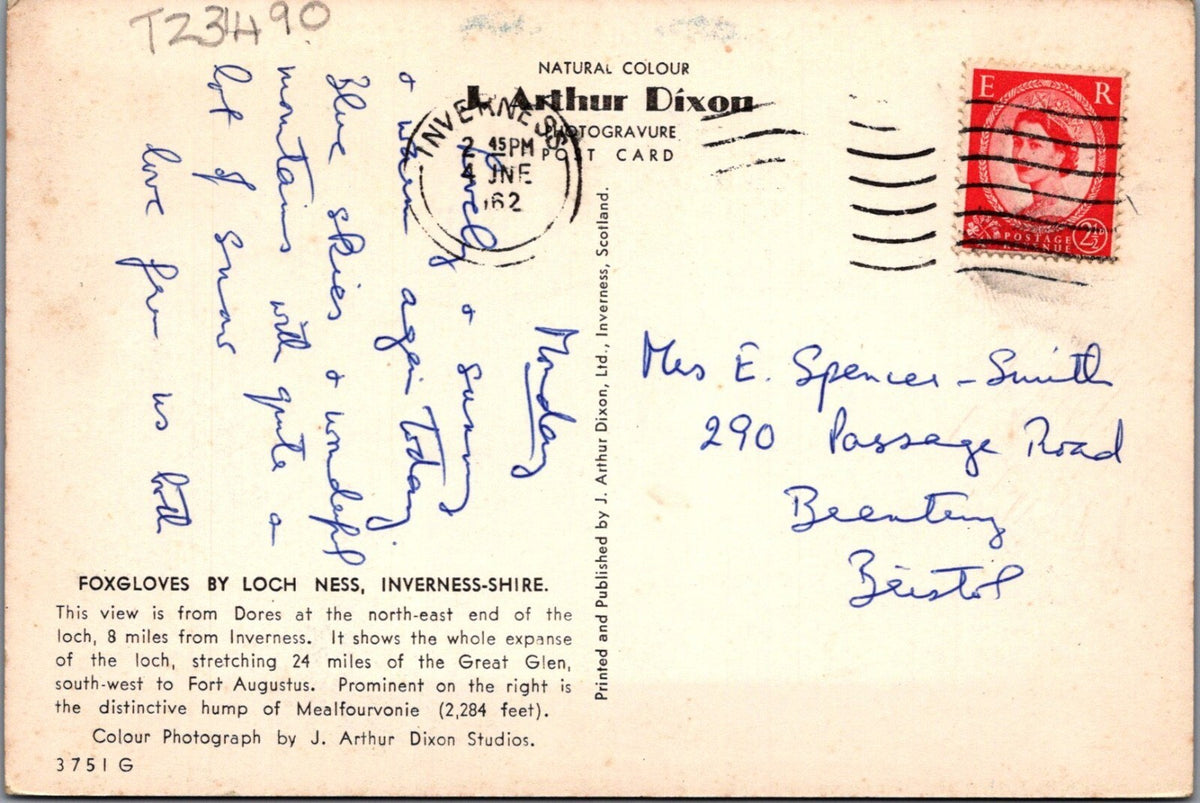 TZ3490
NATURAL COLOUR
J. Arthur Dixon
PHOTOGRAVURE
POST CARD
INVERNESS
2 45PM
4 JNE
62
E R
POSTAGE
REVENUE
2½
Monday
Lovely & sunny
& warm again today.
Blue skies & wonderful
mountains with quite a
lot of snow
love from us both
Mrs E. Spencer-Smith
290 Passage Road
Brentry
Bristol
Printed and Published by J. Arthur Dixon, Ltd., Inverness, Scotland.
FOXGLOVES BY LOCH NESS, INVERNESS-SHIRE.
This view is from Dores at the north-east end of the
loch, 8 miles from Inverness. It shows the whole expanse
of the loch, stretching 24 miles of the Great Glen,
south-west to Fort Augustus. Prominent on the right is
the distinctive hump of Mealfourvonie (2,284 feet).
Colour Photograph by J. Arthur Dixon Studios.
3751 G